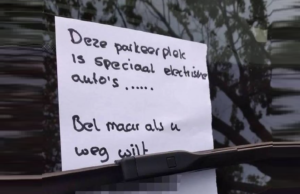 Deze parkeerplek
is speciaal electrische
auto's ......
Bel maar als u
weg wilt